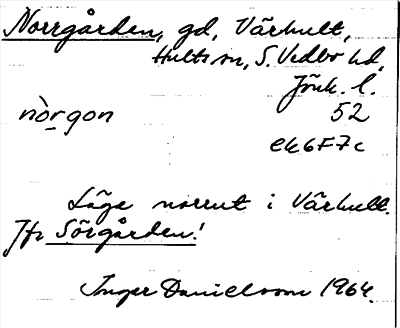 Norrgården, gd, Vårhult,
Hults sn, S. Vedbo hd,
Jönk. l.
nòrgon 52
ek6F7c
Läge norrut i Vårhult.
Jfr Sörgården!
Inger Danielsson 1964.